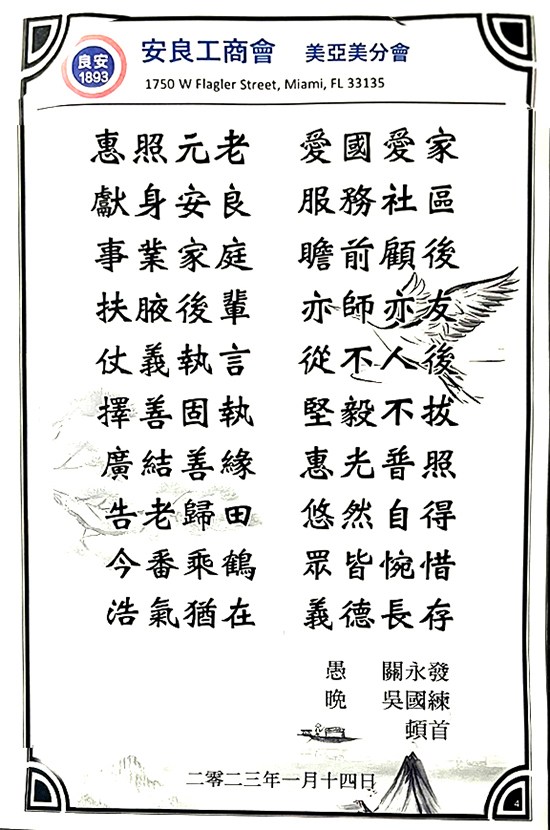 良安
1893
安良工商會 美亞美分會
1750 W Flagler Street, Miami, FL 33135
惠照元老 愛國愛家
獻身安良 服務社區
事業家庭 瞻前顧後
扶腋後輩 亦師亦友
仗義執言 從不人後
擇善固執 堅毅不拔
廣結善緣 惠光普照
告老歸田 悠然自得
今番乘鶴 眾皆惋惜
浩氣猶在 義德長存
愚 關永發
晚 吳國練
頓首
二零二三年一月十四日
4